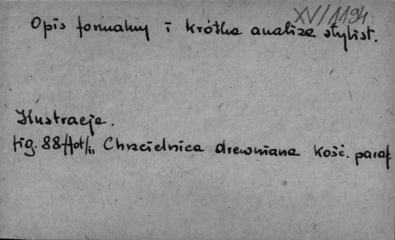 XV/1194
Opis formalny i krótka analiza stylist.
Ilustracje.
fig. 88 /fot/, Chrzcielnica drewniana kość. paraf.